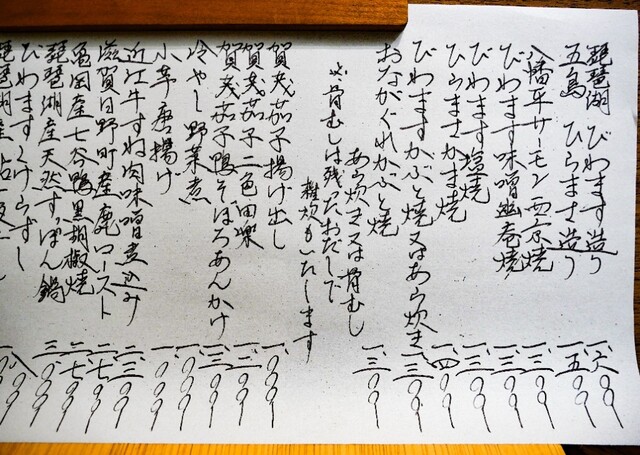 琵琶湖 びわます造り 一、六〇〇
五島 ひらまさ造り 一、五〇〇
八幡平サーモン西京焼 一、三〇〇
びわます味噌幽庵焼 一、三〇〇
びわます塩焼 一、三〇〇
ひらまさかま焼 一、四〇〇
びわますかぶと焼又はあら炊き 一、三〇〇
おながぐれかぶと焼 一、三〇〇
あら炊き又は骨むし
※骨むしは残ったおだしで
雑炊もいたします
賀茂茄子揚げ出し 一、〇〇〇
賀茂茄子二色田楽 一、三〇〇
賀茂茄子鴨そぼろあんかけ 一、三〇〇
冷やし野菜煮 一、〇〇〇
小芋唐揚げ 一、〇〇〇
近江牛すね肉味噌煮込み 二、三〇〇
滋賀日野町産鹿ロースト 二、七〇〇
亀岡産七谷鴨黒胡椒焼 二、七〇〇
琵琶湖産天然すっぽん鍋 三、〇〇〇
びわますこけらずし 八〇〇
琵琶湖産